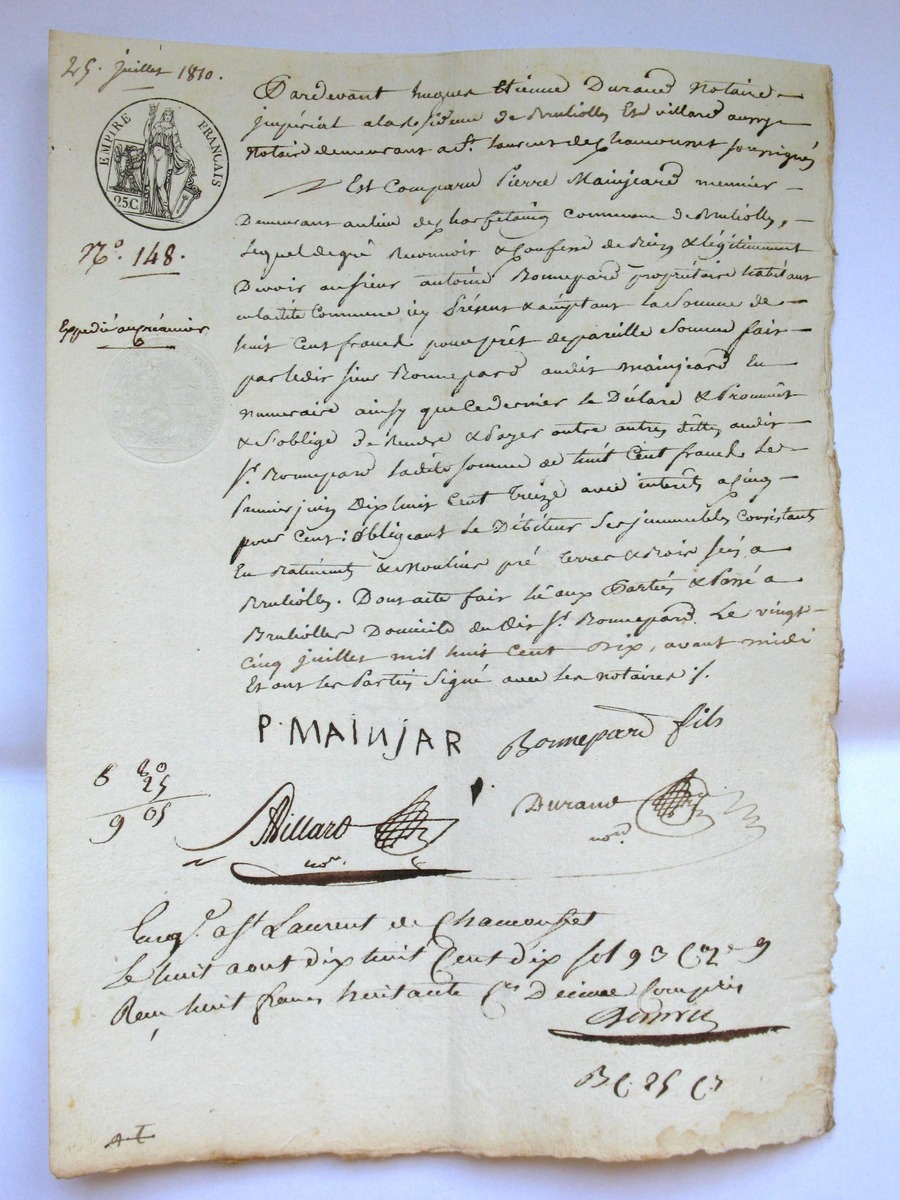 25. juillet 1810.
EMPIRE FRANÇAIS
25C.
N.o 148.
Expedié au créancier
Pardevant hugues Etienne Durand Notaire
jmpérial ala residence de Brulliolles Et villard aussy
Notaire demeurant a St. Laurent de Chamousset soussignés
Est Comparu Pierre Mainjeard meunier
Demeurant au lieu de commune de Brulliolles,
Lequel de gré Reconnoit & Confesse de Bien & légitimement
Devoir au sieur antoine Bonnepard propriétaire habitant
en ladite Commune icy Présent & acceptant la Somme de
huit Cent francs pour prêt de pareille Somme fait
par ledit sieur Bonnepard audit mainjeard En
numeraire ainsy que ce dernier le Déclare & Prommet
& S'oblige de Rendre & Payer entre autres dittes audit
Sr. Bonnepard ladite somme de huit Cent francs Le
Premier juin Dix huit Cent Treize avec interêts a cinq
pour Cent: obligeant le Débiteur Ses jmmeubles Consistants
En Batiments & Moulins pré Terres & Bois sis a
Brulliolles. Dont acte fait lu aux Parties & Passé a
Brulliolles Domicile du dit Sr. Bonnepard. Le vingt
cinq juillet mil huit Cent Dix, avant midi
Et ont les Parties Signé avec les notaires ./.
P. MAINJAR Bonnepard fils
8 80
25
9 05
Villard
nore.
Durand
nore.
Enrgé. a St Laurent de Chamousset
Le huit aout dix huit Cent dix fol 93 Ce 9
Reçu huit francs huitante Ces Decime Compris
B C. 25 C.